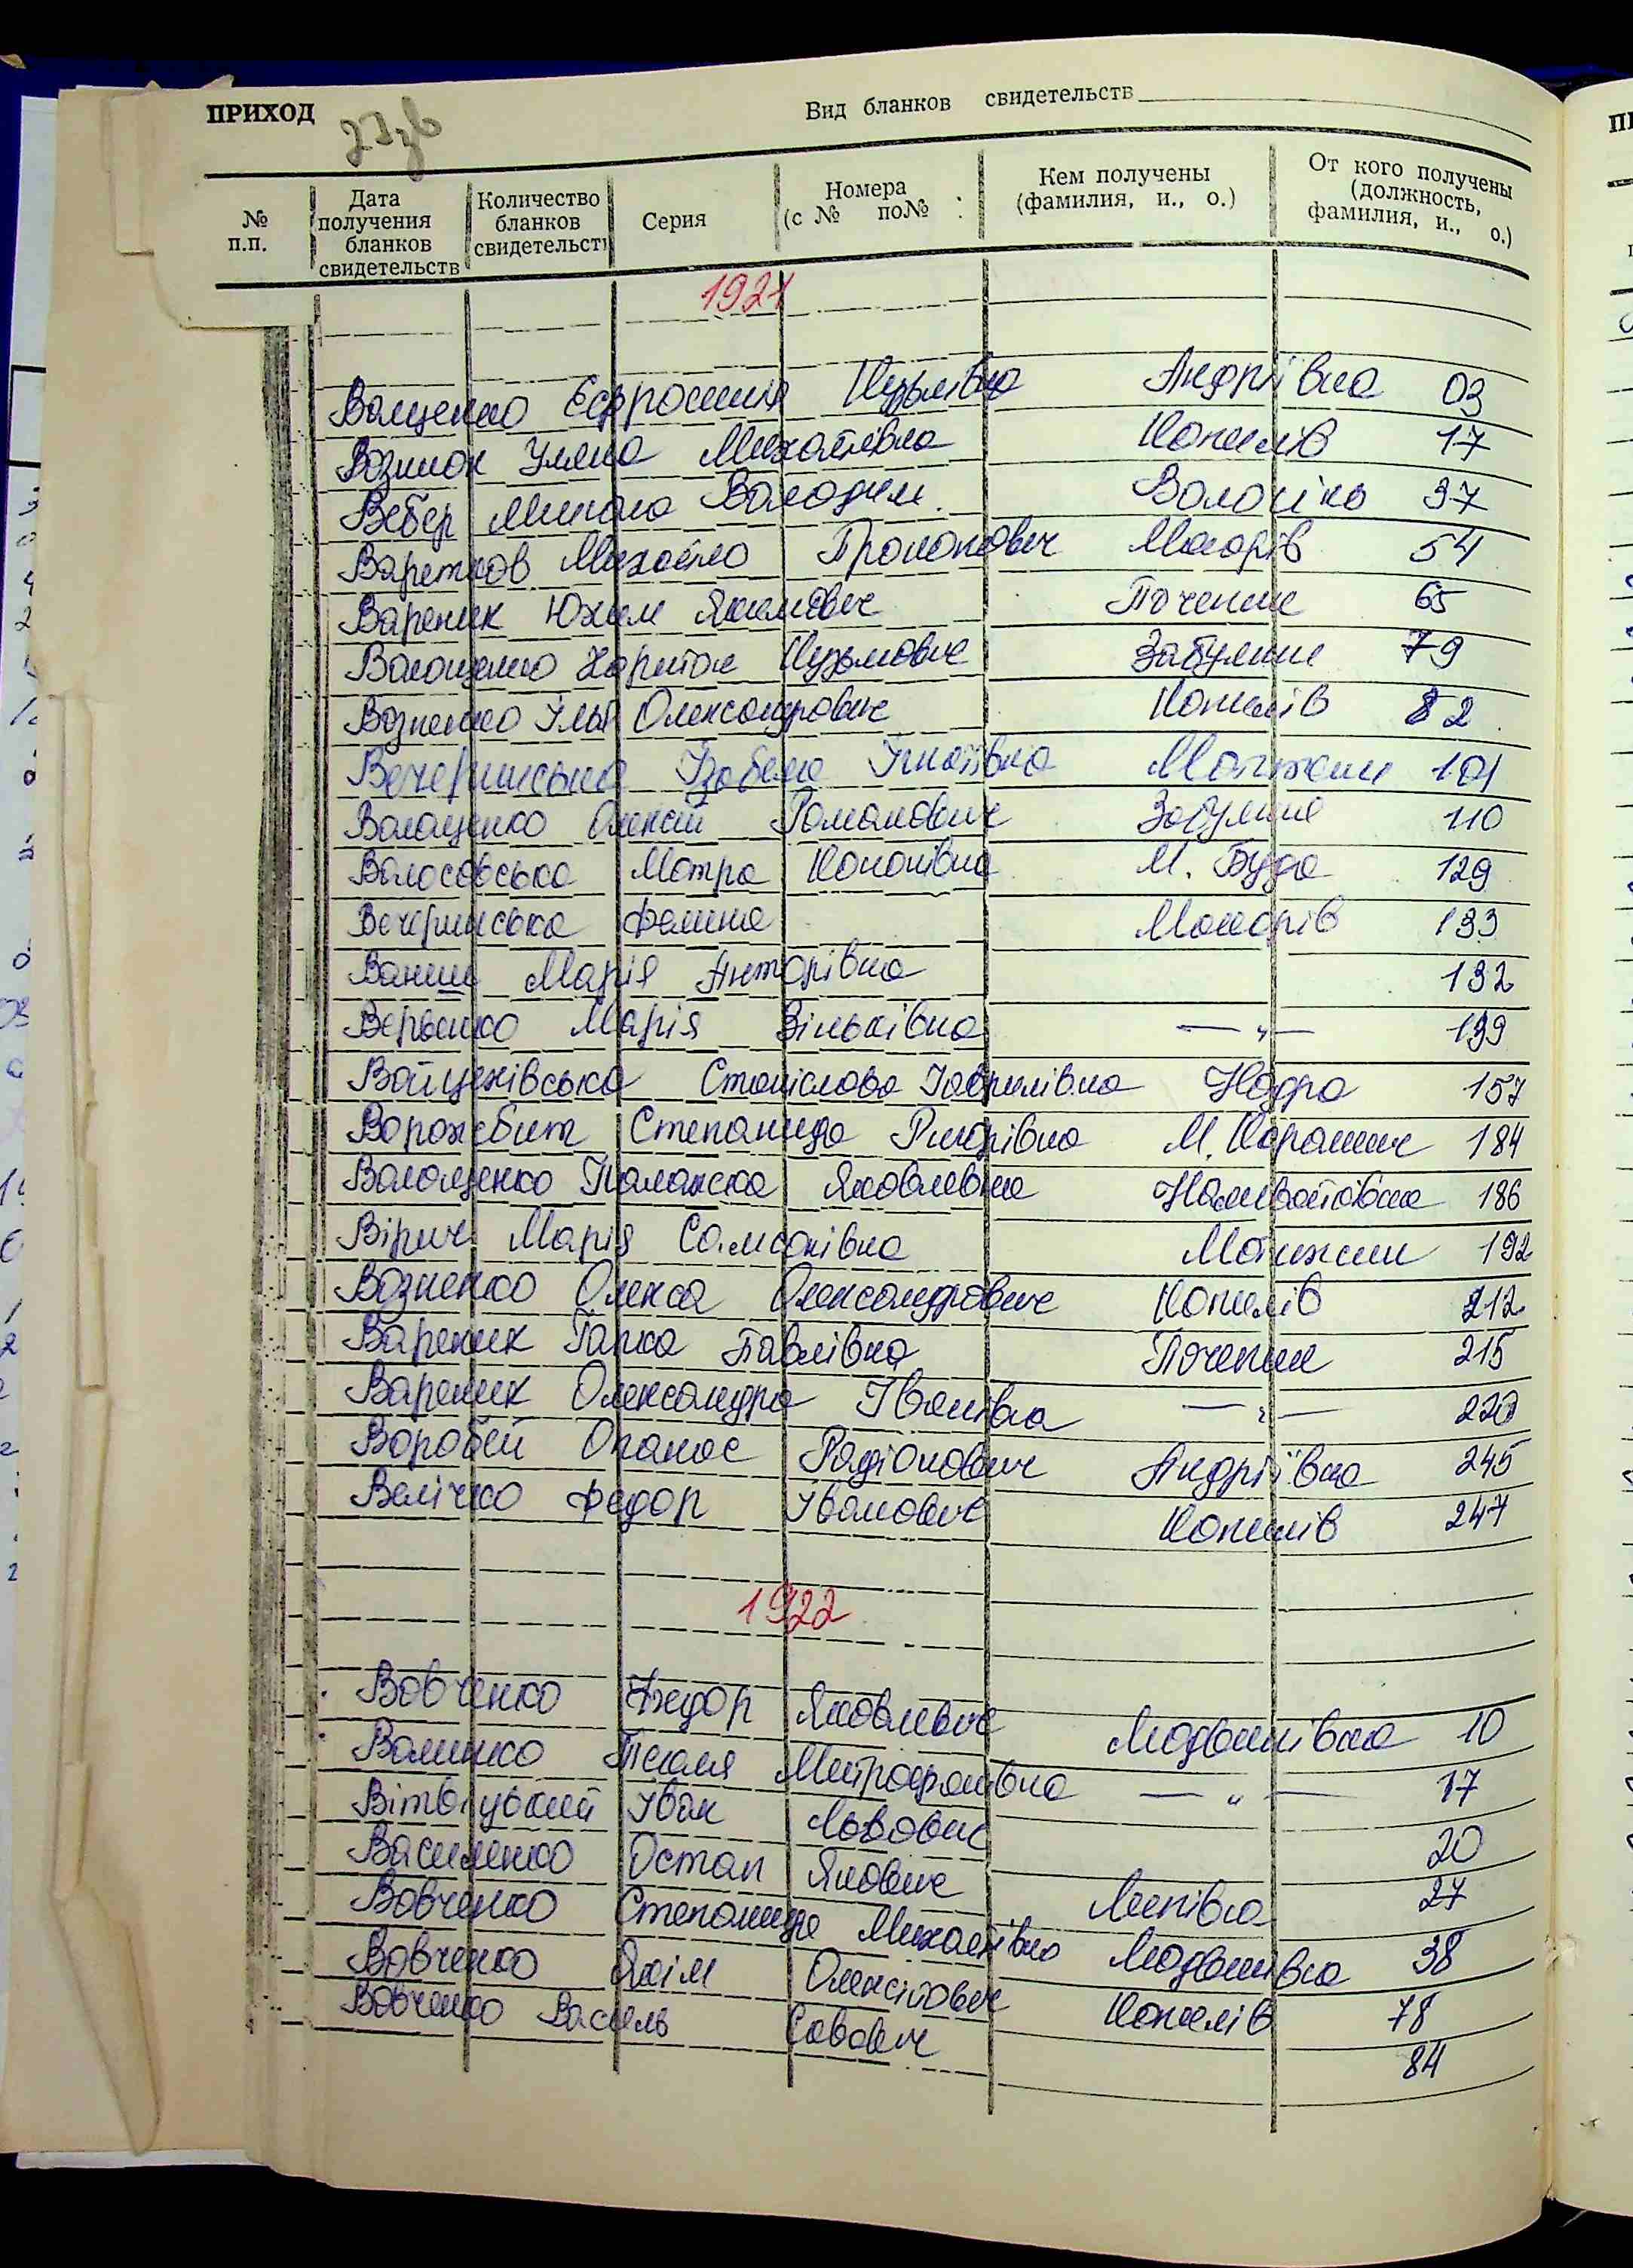 ПРИХОД
Вид бланков свидетельств
№ п.п.
Дата получения бланков свидетельств
Количество бланков свидетельств
Серия
Номера (с № по №
Кем получены (фамилия, и., о.)
От кого получены (должность, фамилия, и., о.)
1921
Волщенко Єфросинія Кузьмівна Андріївка 03
Возик Уляна Михайлівна Копилів 17
Вебер Микола Володим. 37
Михайло Прокопович Макарів 54
Вареник Юхим Якимович Почепин 65
Волощенко Харитон Кузьмович Забуяння 79
Возненко Ілья Олександрович Копилів 82
Вечеринська Ізабела Ігнатівна Мотижин 101
Волощенко Олексій Романович Забуяння 110
Волосовська Мотра Кононівна М. Буда 129
Вечеринська Фаліна Макарів 133
Марія 132
Марія — " — 139
Войцехівська Станіслава Гаврилівна Ніжра 157
Ворожебит Степанида Григорівна М. Карашин 184
Волощенко Палажка Яковлевна Наливайківка 186
Вірич Марія Самсонівна Мотижин 192
Возненко Олекса Олександрович Копилів 212
Вареник Гапка Павлівна Почепин 215
Вареник Олександра Іванівна — " — 220
Воробей Опанас Радіонович Андріївка 245
Велічко Федор Іванович Копилів 247
1922
Вовченко Федор Яковлевич Людвинівка 10
Митрофанівна — " — 17
Іван Львович 20
Василенко Остап Якович Липівка 27
Вовченко Степанида Михайлівна Людвинівка 38
Вовченко Якім Олексійович Копилів 78
Вовченко Василь Савович 84